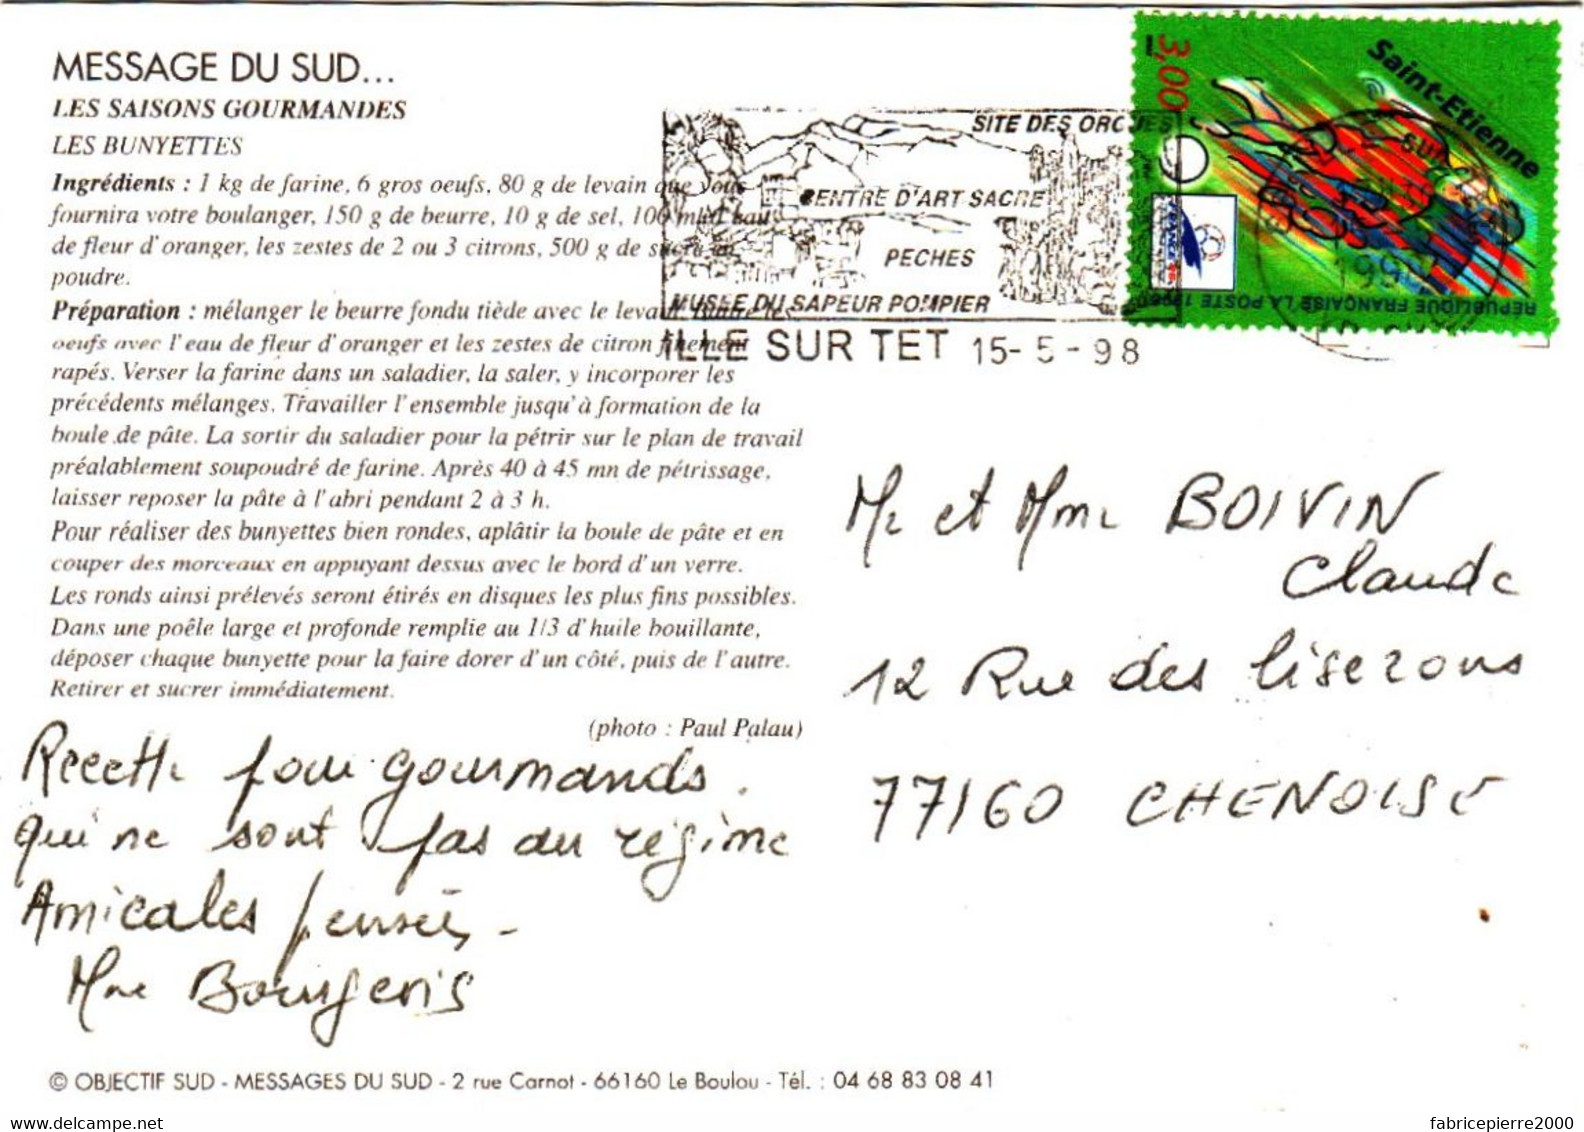 MESSAGE DU SUD...
LES SAISONS GOURMANDES
LES BUNYETTES
Ingrédients : 1 kg de farine, 6 gros oeufs, 80 g de levain que vous
fournira votre boulanger, 150 g de beurre, 10 g de sel, 100 ml d'eau
de fleur d'oranger, les zestes de 2 ou 3 citrons, 500 g de sucre en
poudre.
Préparation : mélanger le beurre fondu tiède avec le levain, battre les
oeufs avec l'eau de fleur d'oranger et les zestes de citron finement
rapés. Verser la farine dans un saladier, la saler, y incorporer les
précédents mélanges. Travailler l'ensemble jusqu'à formation de la
boule de pâte. La sortir du saladier pour la pétrir sur le plan de travail
préalablement soupoudré de farine. Après 40 à 45 mn de pétrissage,
laisser reposer la pâte à l'abri pendant 2 à 3 h.
Pour réaliser des bunyettes bien rondes, aplâtir la boule de pâte et en
couper des morceaux en appuyant dessus avec le bord d'un verre.
Les ronds ainsi prélevés seront étirés en disques les plus fins possibles.
Dans une poêle large et profonde remplie au 1/3 d'huile bouillante,
déposer chaque bunyette pour la faire dorer d'un côté, puis de l'autre.
Retirer et sucrer immédiatement.
(photo : Paul Palau)
Recette pour gourmands.
qui ne sont pas au régime
Amicales pensées -
Mme Bourgeois
SITE DES ORGUES
CENTRE D'ART SACRE
PECHES
MUSEE DU SAPEUR POMPIER
ILLE SUR TET 15-5-98
3,00
Saint-Etienne
FRANCE 98
REPUBLIQUE FRANÇAISE LA POSTE 1996
SUR
Mr et Mme BOIVIN
Claude
12 Rue des liserons
77160 CHENOISE
© OBJECTIF SUD - MESSAGES DU SUD - 2 rue Carnot - 66160 Le Boulou - Tél. : 04 68 83 08 41
fabricepierre2000
delcampe.net